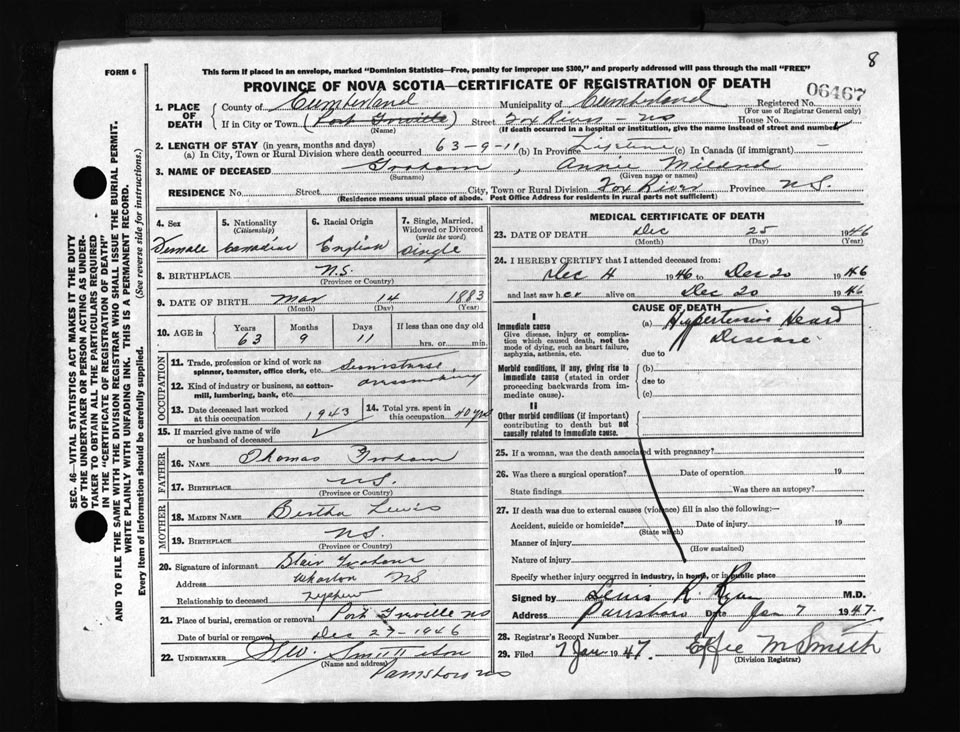 8
FORM 6
This form if placed in an envelope, marked "Dominion Statistics—Free, penalty for improper use $300," and properly addressed will pass through the mail "FREE"
PROVINCE OF NOVA SCOTIA—CERTIFICATE OF REGISTRATION OF DEATH
06467
1. PLACE OF DEATH County of Cumberland Municipality of Cumberland Registered No.
(For use of Registrar General only)
If in City or Town (Port Greville) Street Fox River – NS House No.
(Name) (If death occurred in a hospital or institution, give the name instead of street and number)
2. LENGTH OF STAY (in years, months and days)
(a) In City, Town or Rural Division where death occurred 63-9-11 (b) In Province Lifetime (c) In Canada (if immigrant) —
3. NAME OF DECEASED Graham, Annie Mildred
(Surname) (Given name or names)
RESIDENCE No. Street City, Town or Rural Division Fox River Province N.S.
(Residence means usual place of abode. Post Office Address for residents in rural parts not sufficient)
4. Sex Female
5. Nationality (Citizenship) Canadian
6. Racial Origin English
7. Single, Married, Widowed or Divorced (write the word) Single
8. BIRTHPLACE N.S.
(Province or Country)
9. DATE OF BIRTH Mar 14 1883
(Month) (Day) (Year)
10. AGE in Years Months Days If less than one day old
63 9 11 hrs. or min.
OCCUPATION
11. Trade, profession or kind of work as spinner, teamster, office clerk, etc. Seamstress,
12. Kind of industry or business, as cotton-mill, lumbering, bank, etc. dressmaking
13. Date deceased last worked at this occupation 1943
14. Total yrs. spent in this occupation 40 yrs
15. If married give name of wife or husband of deceased
FATHER
16. NAME Thomas Graham
17. BIRTHPLACE N.S.
(Province or Country)
MOTHER
18. MAIDEN NAME Bertha Lewis
19. BIRTHPLACE N.S.
(Province or Country)
20. Signature of informant Blair Graham
Address Wharton NS
Relationship to deceased Nephew
21. Place of burial, cremation or removal Port Greville NS
Date of burial or removal Dec 27-1946
22. UNDERTAKER
(Name and address)
Parrsboro NS
MEDICAL CERTIFICATE OF DEATH
23. DATE OF DEATH Dec 25 1946
(Month) (Day) (Year)
24. I HEREBY CERTIFY that I attended deceased from:
Dec 4 1946 to Dec 20 1946
and last saw her alive on Dec 20 1946
CAUSE OF DEATH
I
Immediate cause
Give disease, injury or complication which caused death, not the mode of dying, such as heart failure, asphyxia, asthenia, etc.
(a) Hypertensive Heart Disease
due to
Morbid conditions, if any, giving rise to immediate cause (stated in order proceeding backwards from immediate cause).
(b)
due to
(c)
II
Other morbid conditions (if important) contributing to death but not causally related to immediate cause.
25. If a woman, was the death associated with pregnancy?
26. Was there a surgical operation? Date of operation 19
State findings Was there an autopsy?
27. If death was due to external causes (violence) fill in also the following:—
Accident, suicide or homicide? Date of injury 19
(State which)
Manner of injury
(How sustained)
Nature of injury
Specify whether injury occurred in industry, in home, or in public place
Signed by Lewis R. Ryan M.D.
Address Parrsboro Date Jan 7 1947.
28. Registrar's Record Number
29. Filed 7 Jan 1947. Effie M Smith
(Division Registrar)
SEC. 46—VITAL STATISTICS ACT MAKES IT THE DUTY
OF THE UNDERTAKER OR PERSON ACTING AS UNDER-
TAKER TO OBTAIN ALL THE PARTICULARS REQUIRED
IN THE "CERTIFICATE OF REGISTRATION OF DEATH"
AND TO FILE THE SAME WITH THE DIVISION REGISTRAR WHO SHALL ISSUE THE BURIAL PERMIT.
WRITE PLAINLY WITH UNFADING INK. THIS IS A PERMANENT RECORD.
Every item of information should be carefully supplied. (See reverse side for instructions.)